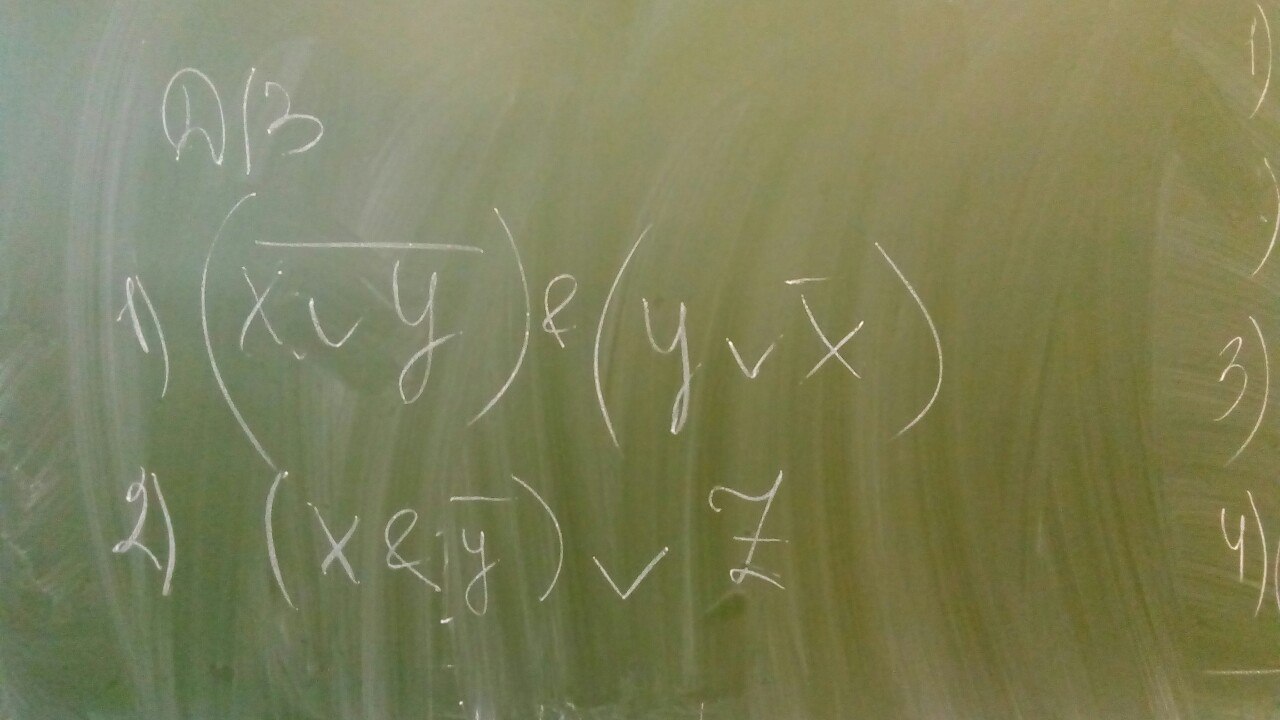 Д/З
1) (x̅ ̅∨̅ ̅y̅) & (y ∨ x̅)
2) (x & y̅) ∨ Z
1)
)
3)
4) (